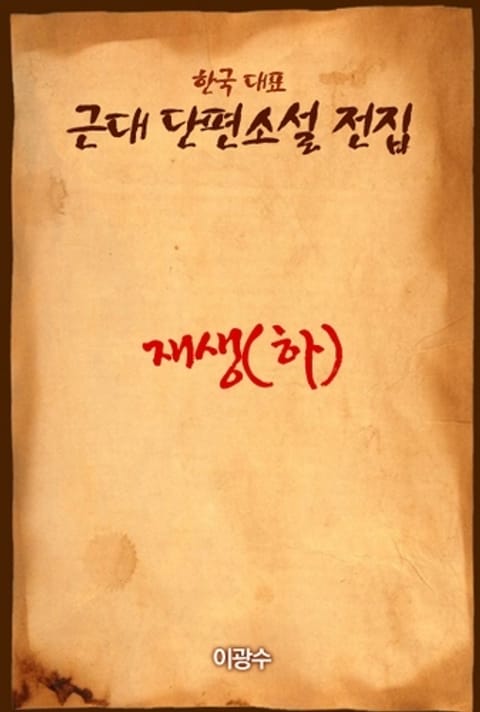 한국 대표
근대 단편소설 전집
재생(하)
이광수